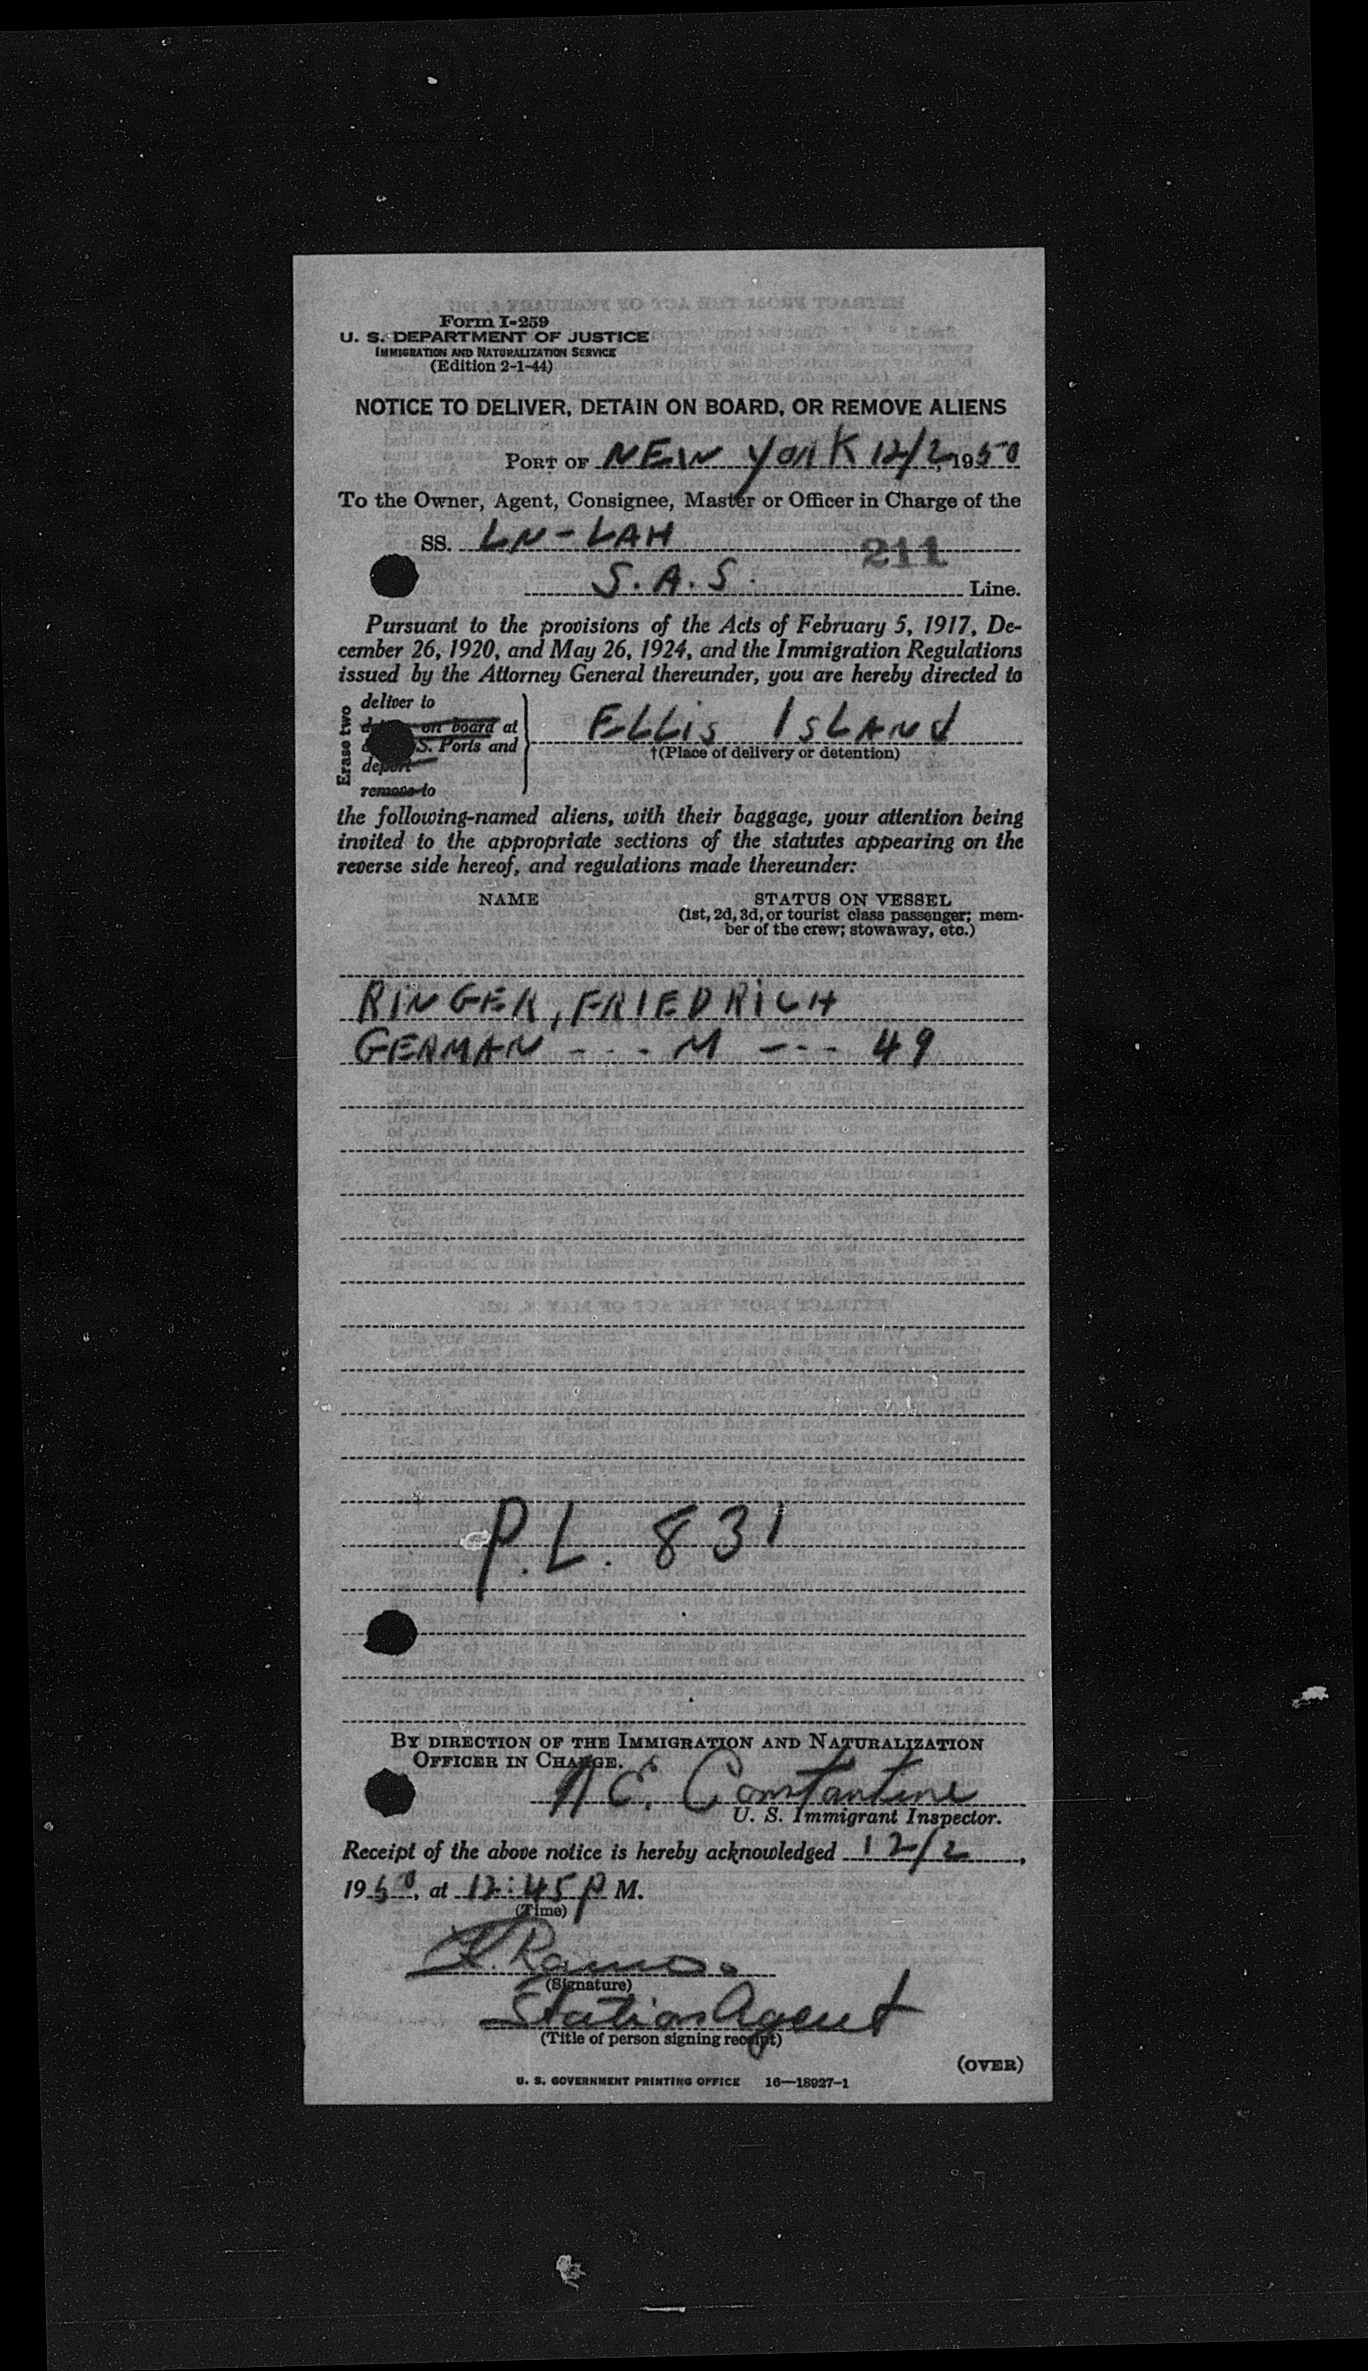 Form I-259
U. S. DEPARTMENT OF JUSTICE
IMMIGRATION AND NATURALIZATION SERVICE
(Edition 2-1-44)
NOTICE TO DELIVER, DETAIN ON BOARD, OR REMOVE ALIENS
PORT OF NEW YORK 12/2, 1950
To the Owner, Agent, Consignee, Master or Officer in Charge of the
SS. LN-LAH 211
S.A.S. Line.
Pursuant to the provisions of the Acts of February 5, 1917, De-
cember 26, 1920, and May 26, 1924, and the Immigration Regulations
issued by the Attorney General thereunder, you are hereby directed to
Erase two
deliver to
on board at
S. Ports and
deport
remove to
ELLIS ISLAND
†(Place of delivery or detention)
the following-named aliens, with their baggage, your attention being
invited to the appropriate sections of the statutes appearing on the
reverse side hereof, and regulations made thereunder:
NAME STATUS ON VESSEL
(1st, 2d, 3d, or tourist class passenger; mem-
ber of the crew; stowaway, etc.)
RINGER, FRIEDRICH
GERMAN - - - M - - - 49
P.L. 831
BY DIRECTION OF THE IMMIGRATION AND NATURALIZATION
OFFICER IN CHARGE.
N E. Constantine
U. S. Immigrant Inspector.
Receipt of the above notice is hereby acknowledged 12/2,
1950, at 12:45 P M.
(Time)
(Signature)
Station Agent
(Title of person signing receipt)
(OVER)
U. S. GOVERNMENT PRINTING OFFICE 16—18927-1